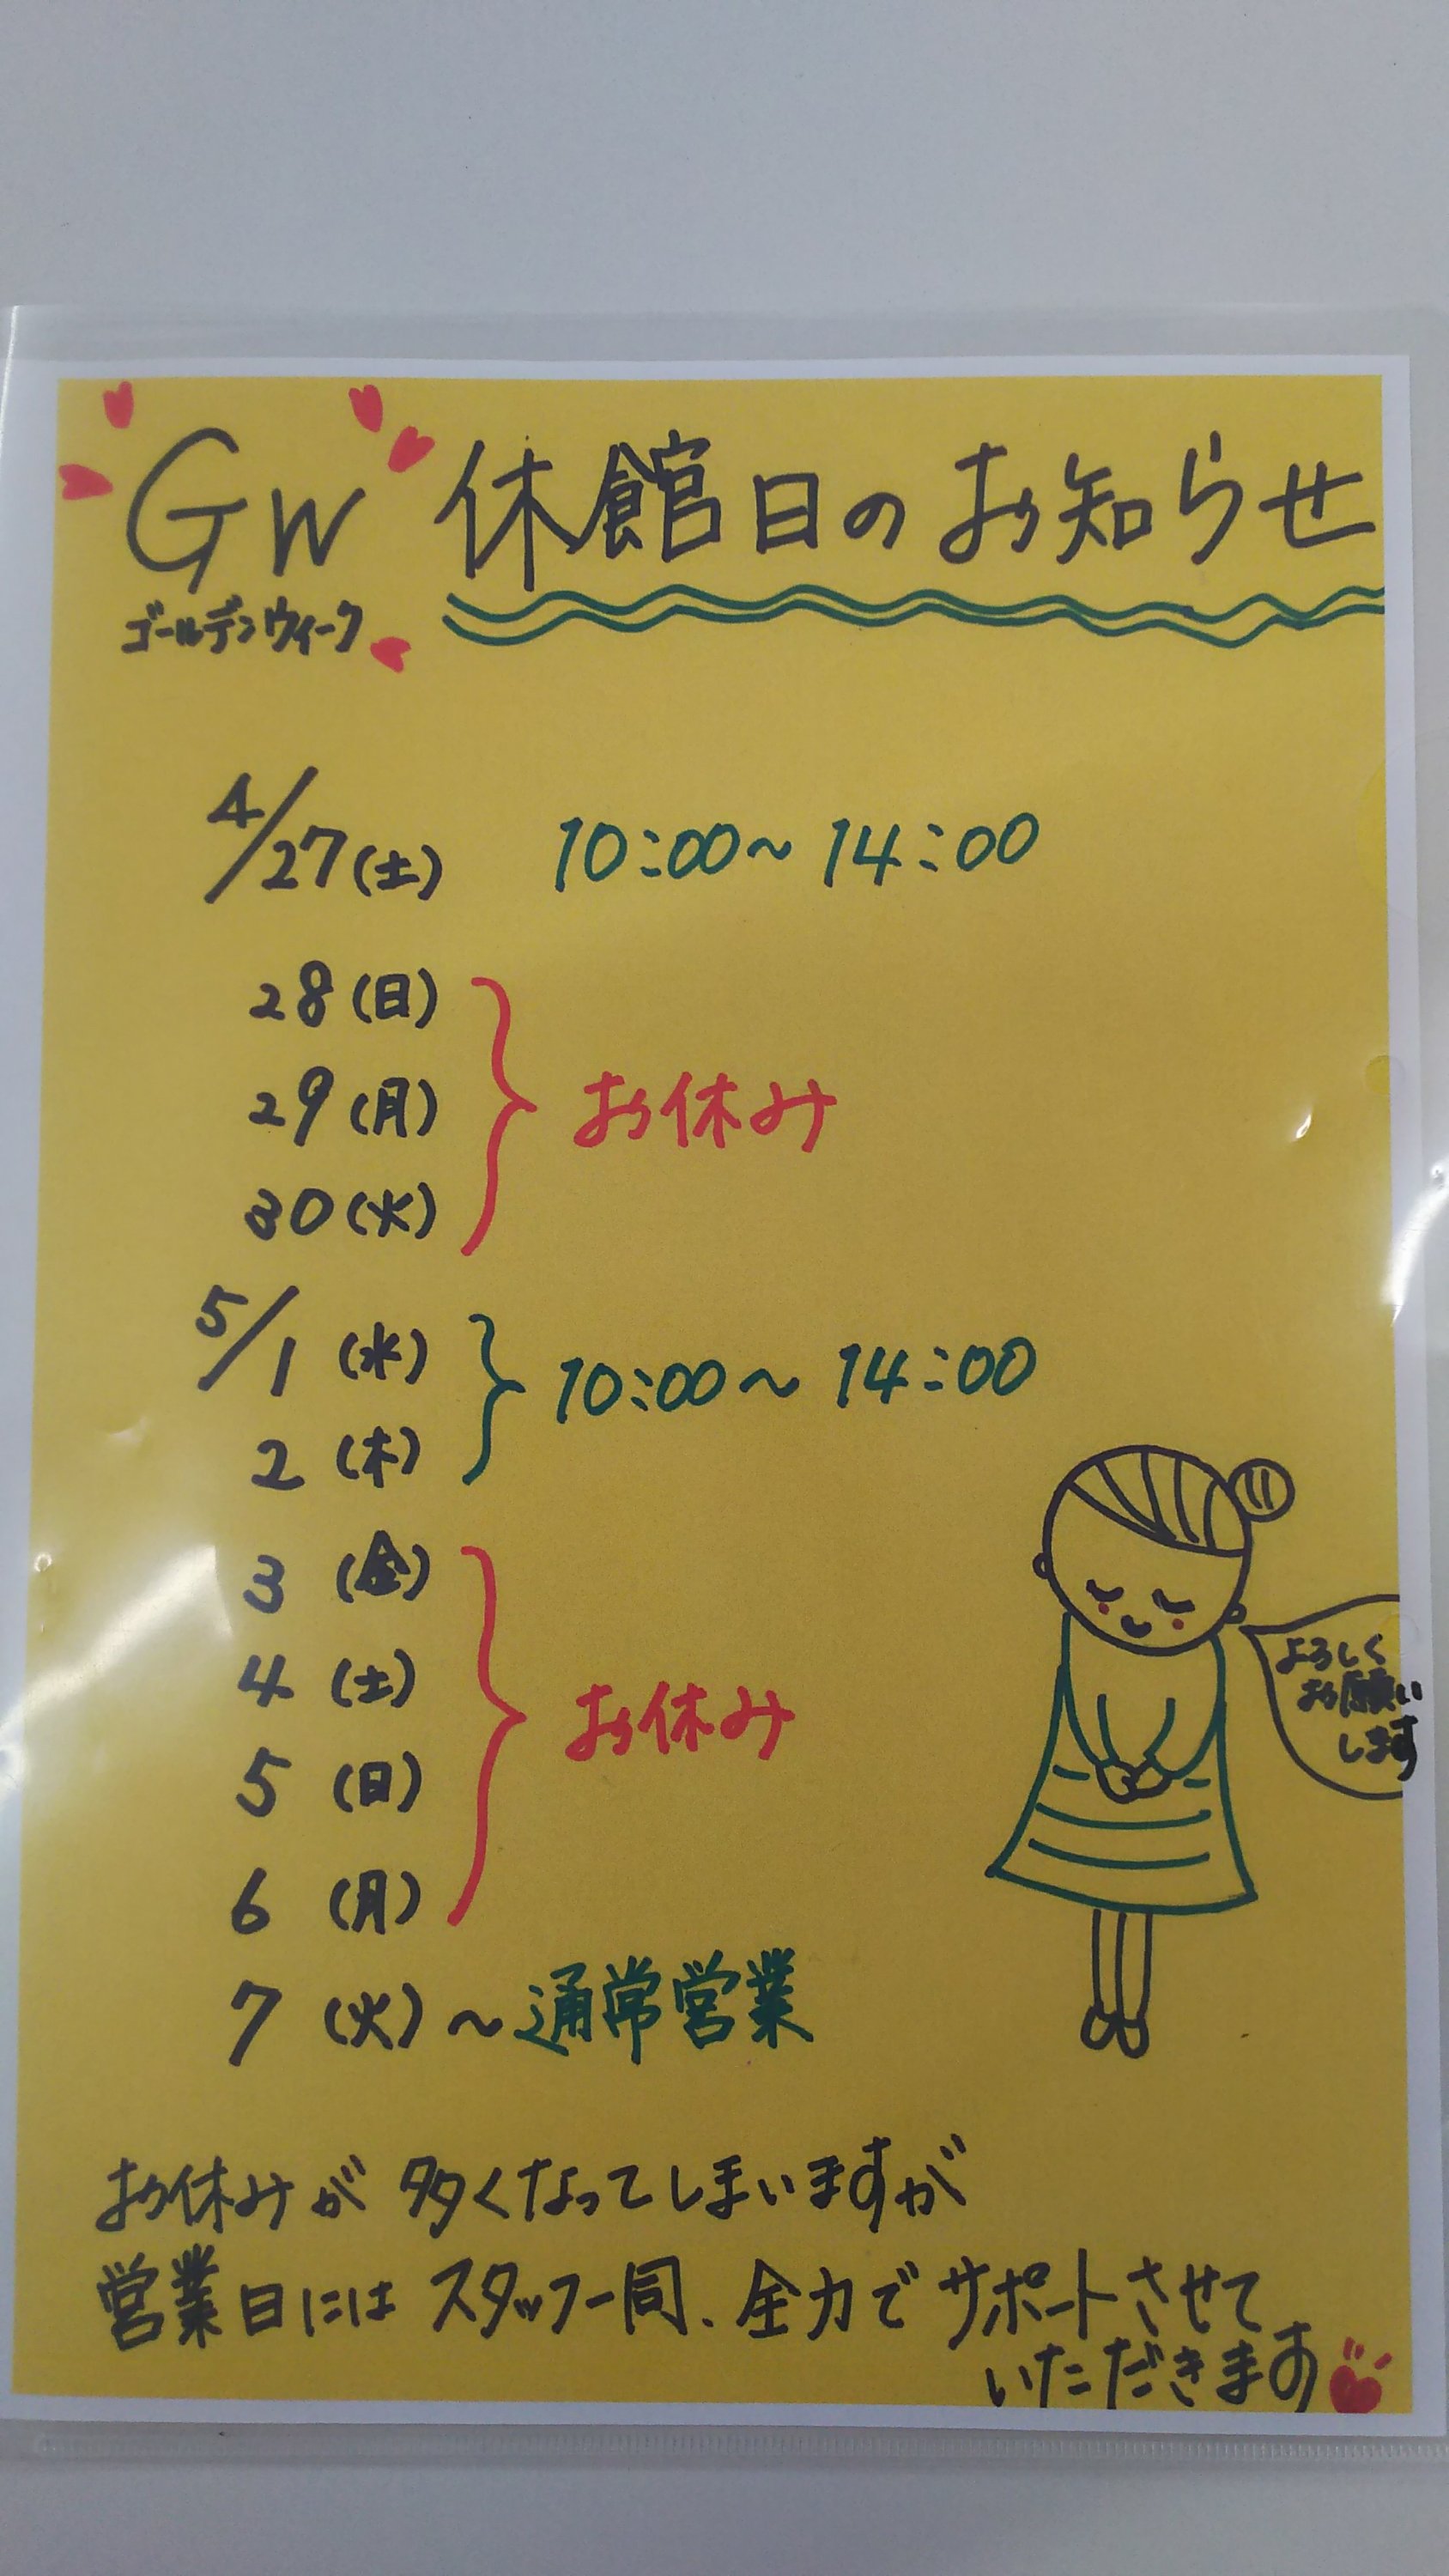 GW 休館日のお知らせ
ゴールデンウィーク
4/27(土) 10:00~14:00
28(日)
29(月) お休み
30(火)
5/1(水) 10:00~14:00
2(木)
3(金)
4(土) お休み
5(日)
6(月)
7(火)~通常営業
よろしく
お願い
します
お休みが多くなってしまいますが
営業日にはスタッフ一同、全力でサポートさせて
いただきます